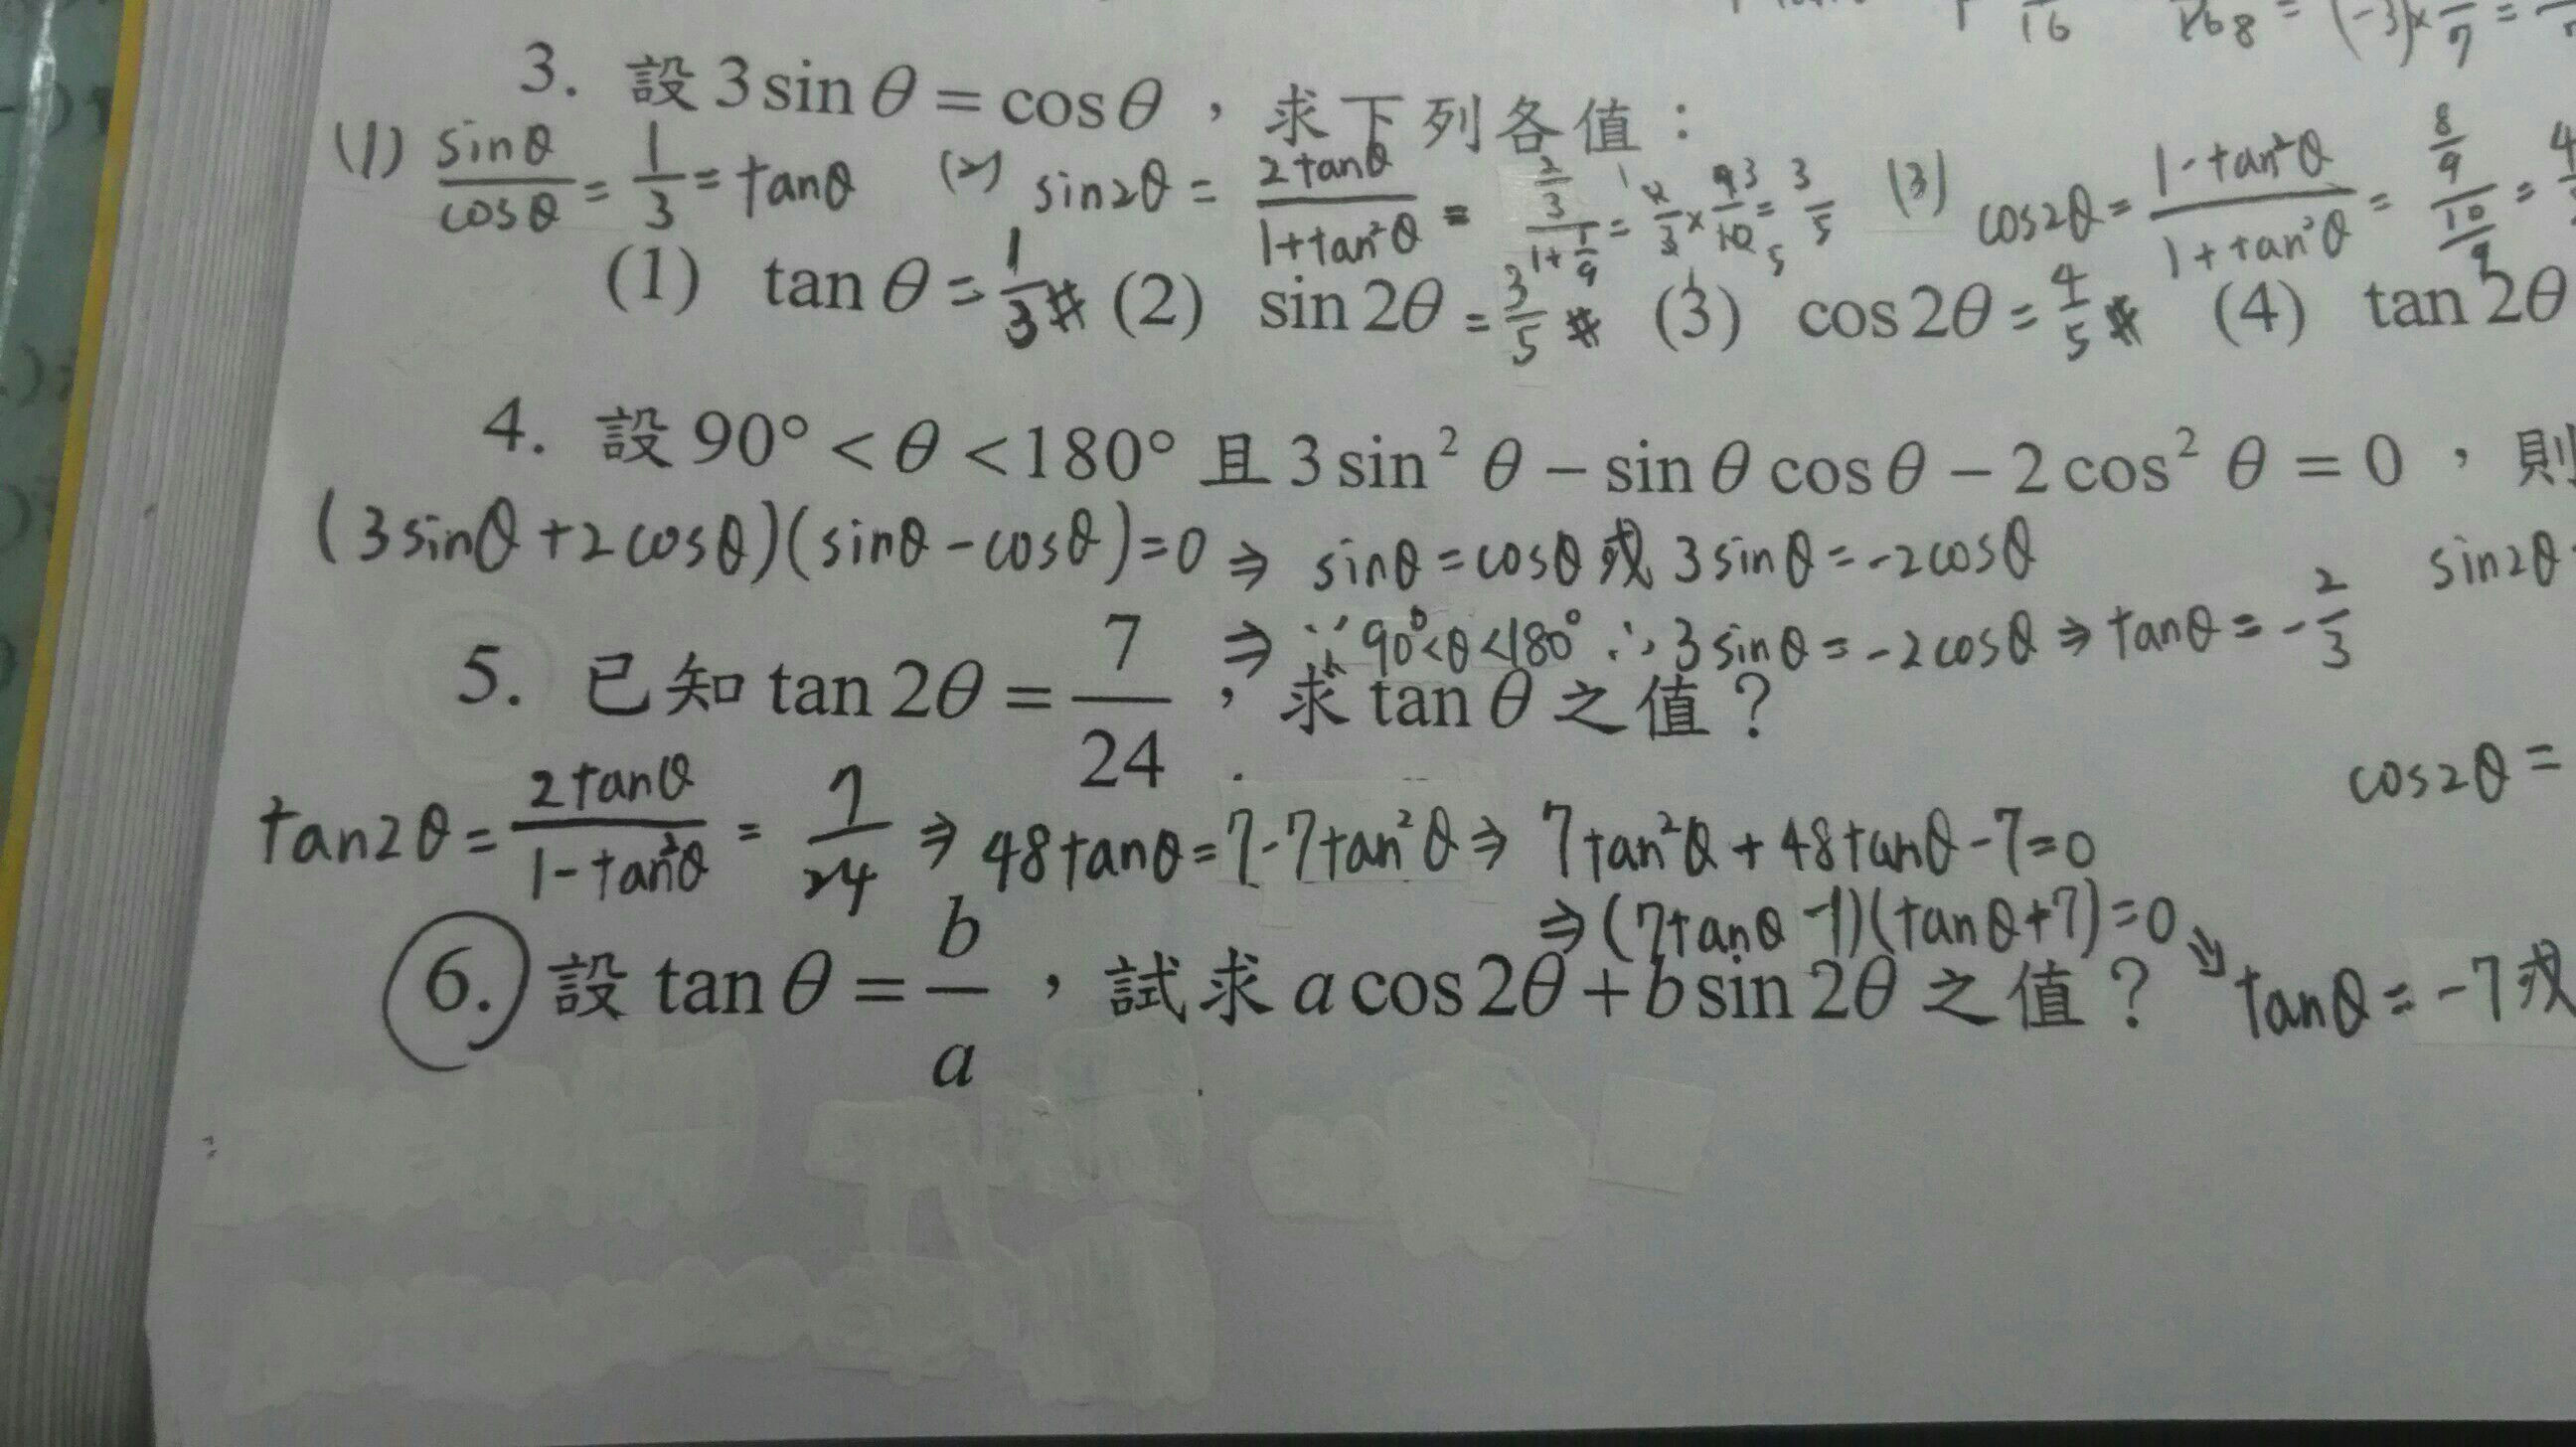 16 168 = (-3)× /7 =
3. 設 3 sin θ = cos θ ,求下列各值:
(1) sinθ/cosθ = 1/3 = tanθ (2) sin2θ = 2tanθ/1+tan²θ = 2/3/1+1/9 = 2/3 × 9/10 = 3/5 (3) cos2θ = 1-tan²θ/1+tan²θ = 8/9/10/9 = 4
(1) tan θ = 1/3 # (2) sin 2θ = 3/5 # (3) cos 2θ = 4/5 # (4) tan 2θ
4. 設 90° < θ < 180° 且 3 sin² θ − sin θ cos θ − 2 cos² θ = 0 ,則
(3sinθ+2cosθ)(sinθ-cosθ)=0 ⇒ sinθ=cosθ 或 3sinθ=-2cosθ sin2θ
⇒ ∵ 90°<θ<180° ∴ 3sinθ=-2cosθ ⇒ tanθ = -2/3
5. 已知 tan 2θ = 7/24 ,求 tan θ 之值?
cos2θ =
tan2θ = 2tanθ/1-tan²θ = 7/24 ⇒ 48tanθ=7-7tan²θ ⇒ 7tan²θ+48tanθ-7=0
⇒ (7tanθ-1)(tanθ+7)=0
6. 設 tan θ = b/a ,試求 a cos 2θ + b sin 2θ 之值?
⇒ tanθ = -7 或